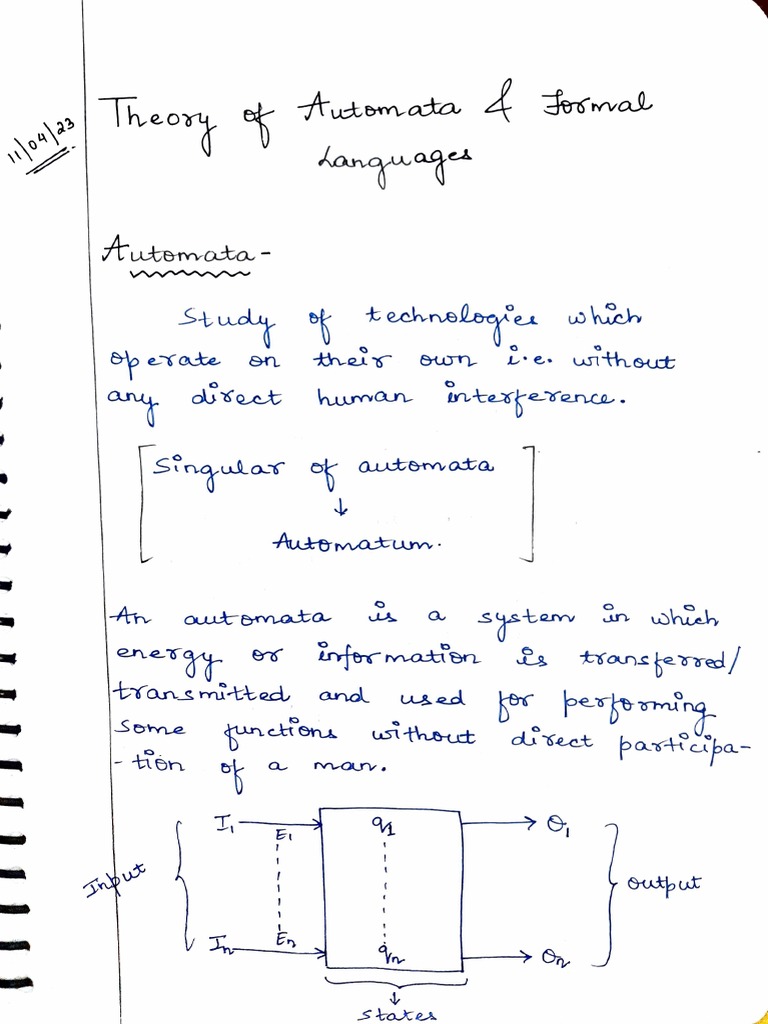 11/04/23
Theory of Automata & Formal
Languages
Automata-
Study of technologies which
operate on their own i.e. without
any direct human interference.
Singular of automata
↓
Automatum.
An automata is a system in which
energy or information is transferred/
transmitted and used for performing
some functions without direct participa-
-tion of a man.
I₁ E₁ q₁ O₁
Input output
Iₙ Eₙ qₙ Oₙ
↓
States